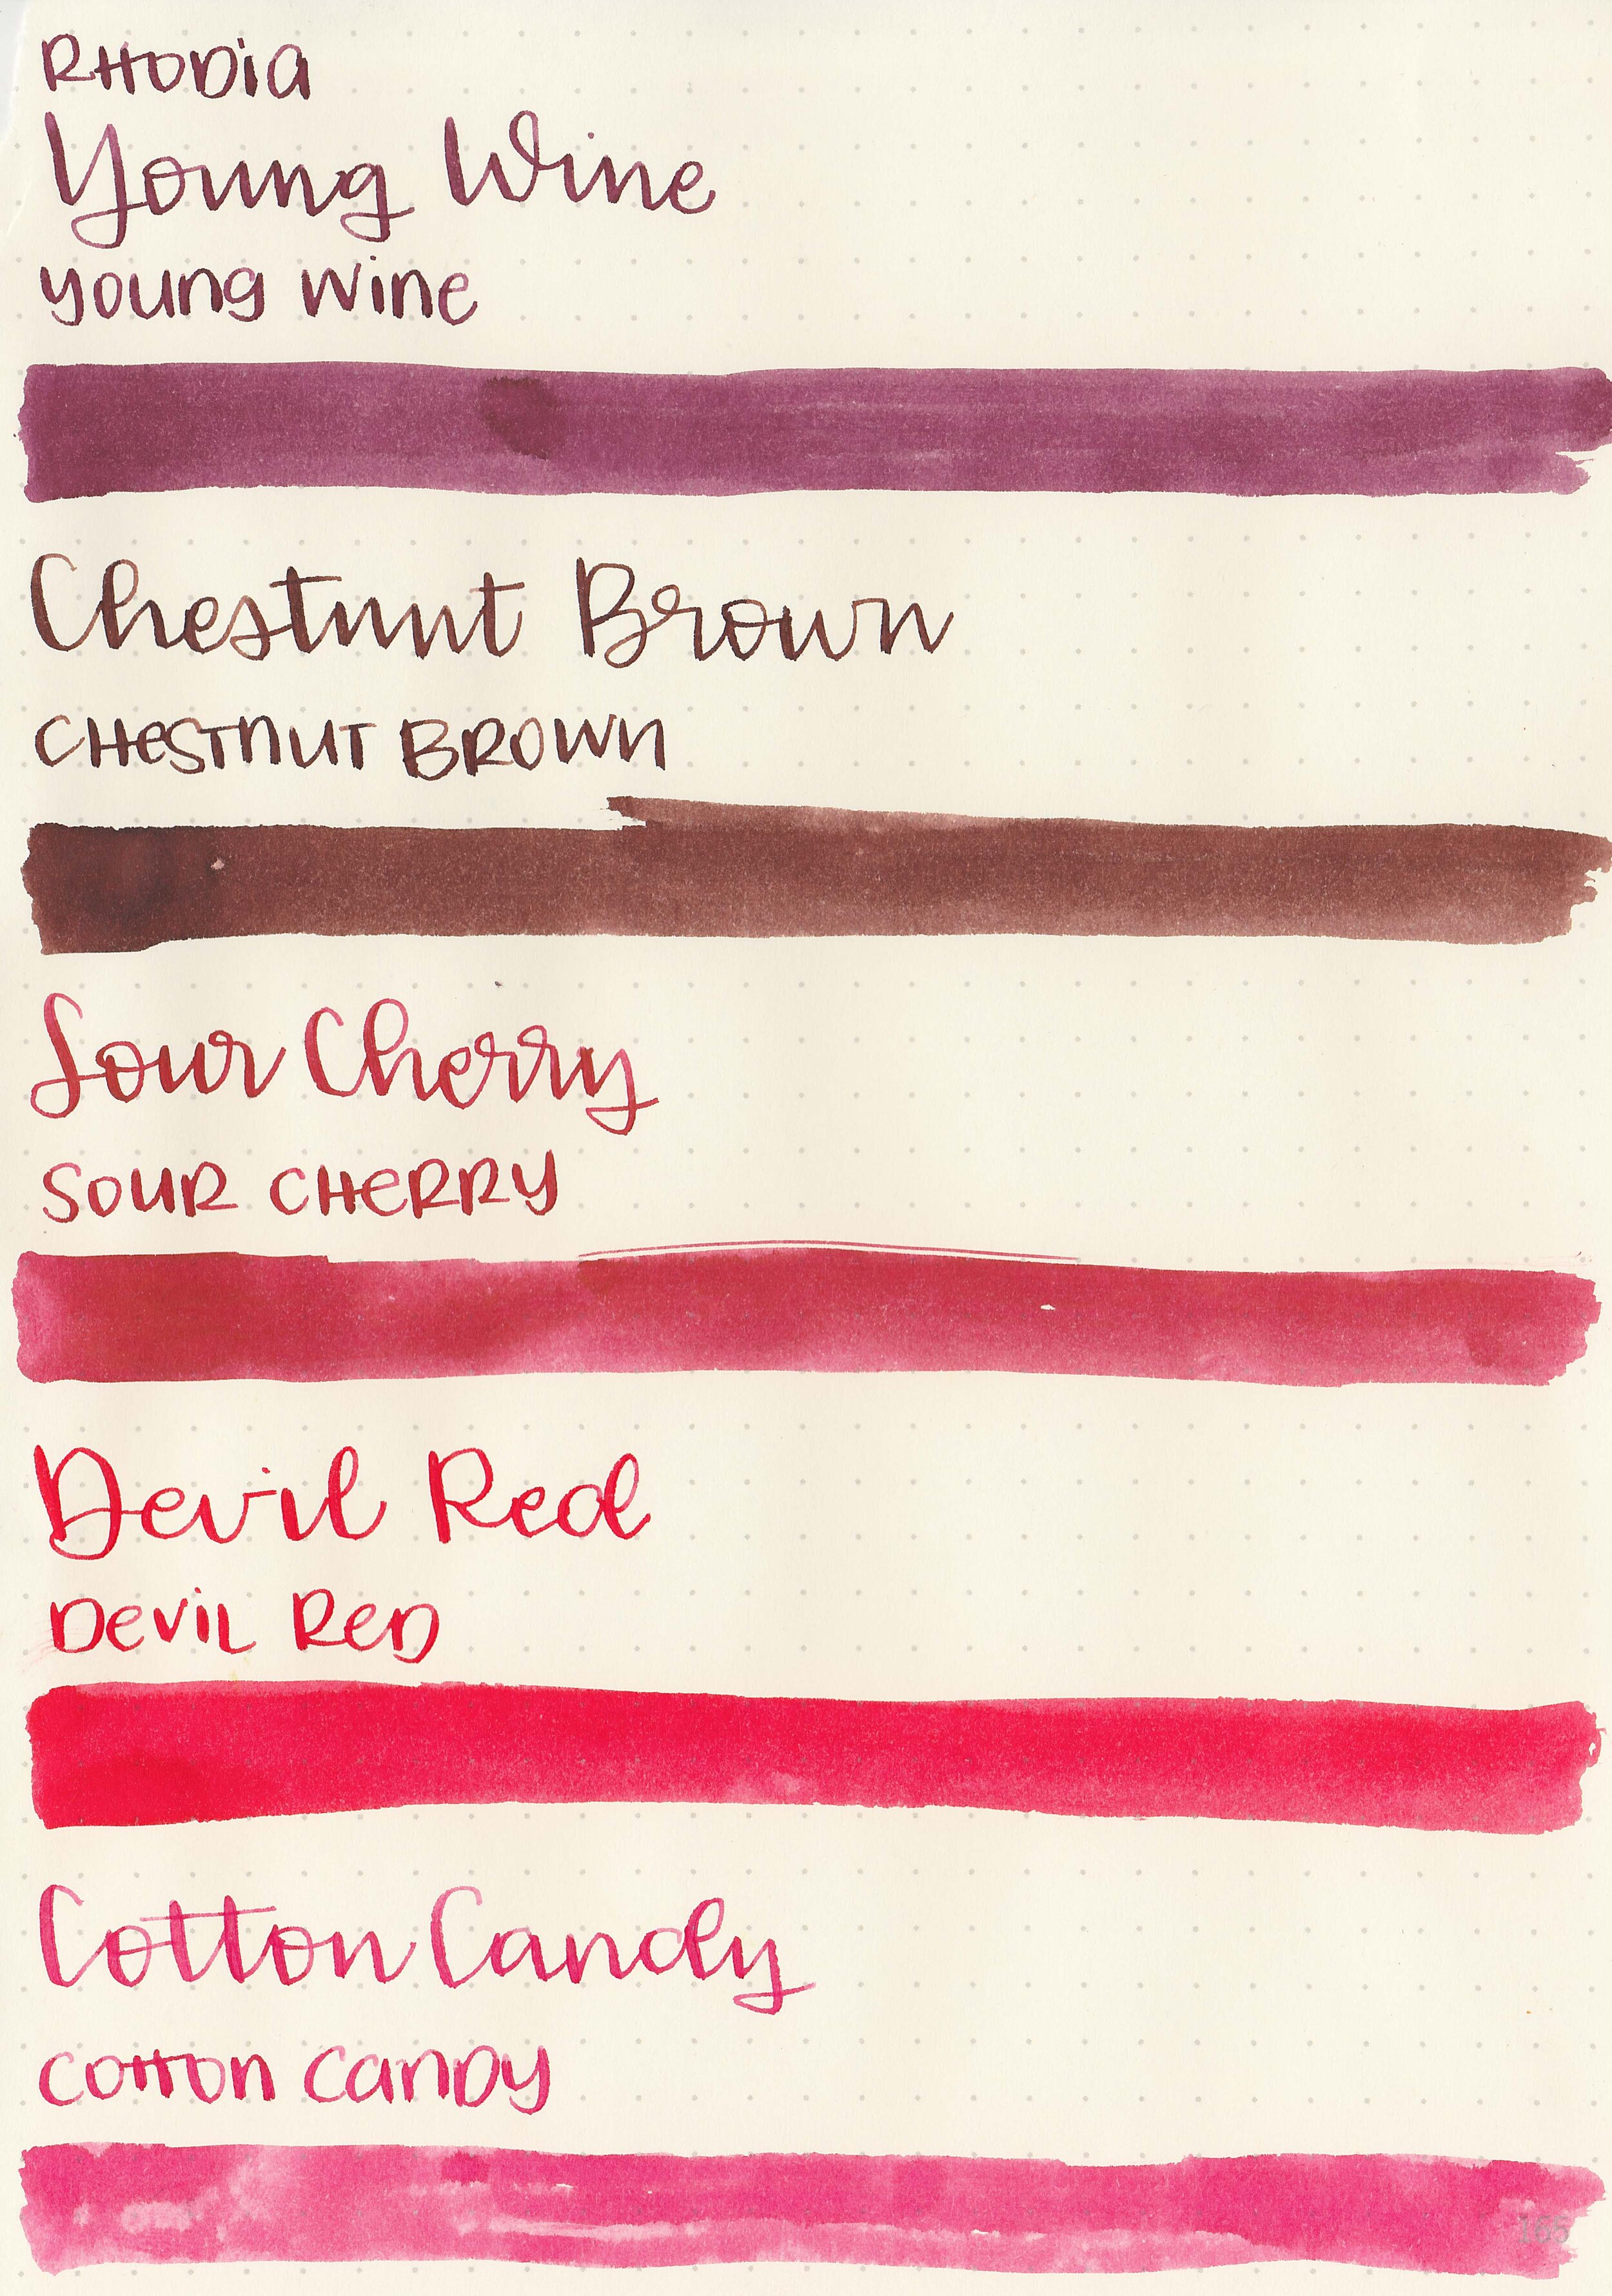 RHODia
Young Wine
young wine
Chestnut Brown
CHeSTnuT BROWn
Sour Cherry
SOUR CHeRRY
Devil Red
DeViL ReD
Cotton Candy
COTTON CanDY
165